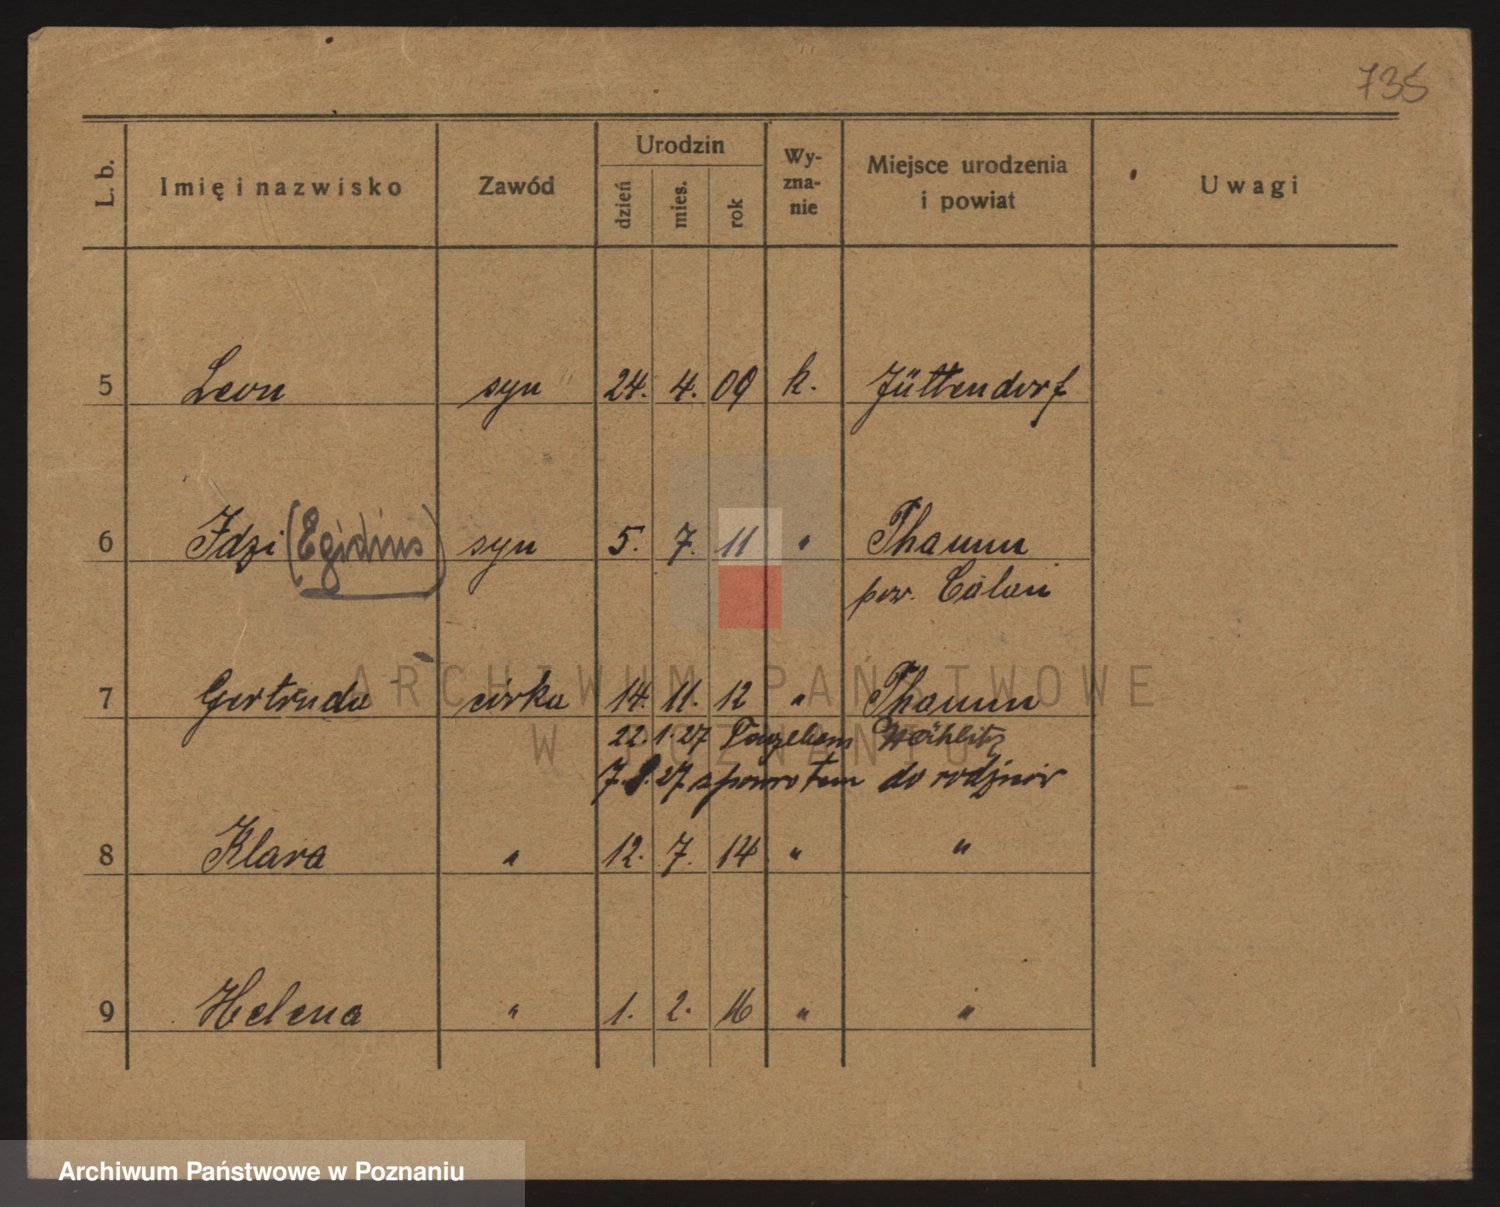 735
L. b. Imię i nazwisko Zawód Urodzin dzień mies. rok Wy-zna-nie Miejsce urodzenia i powiat Uwagi
5 Leon syn 24. 4. 09 k. Jüttendorf
6 Idzi (Egidius) syn 5. 7. 11 " Thamm
pow. Calau
7 Gertruda córka 14. 11. 12 " Thamm
22. 1. 27
7. 8. 27 z powrotem do rodziców
8 Klara " 12. 7. 14 " "
9 Helena " 1. 2. 16 " "
ARCHIWUM PAŃSTWOWE
W POZNANIU
Archiwum Państwowe w Poznaniu